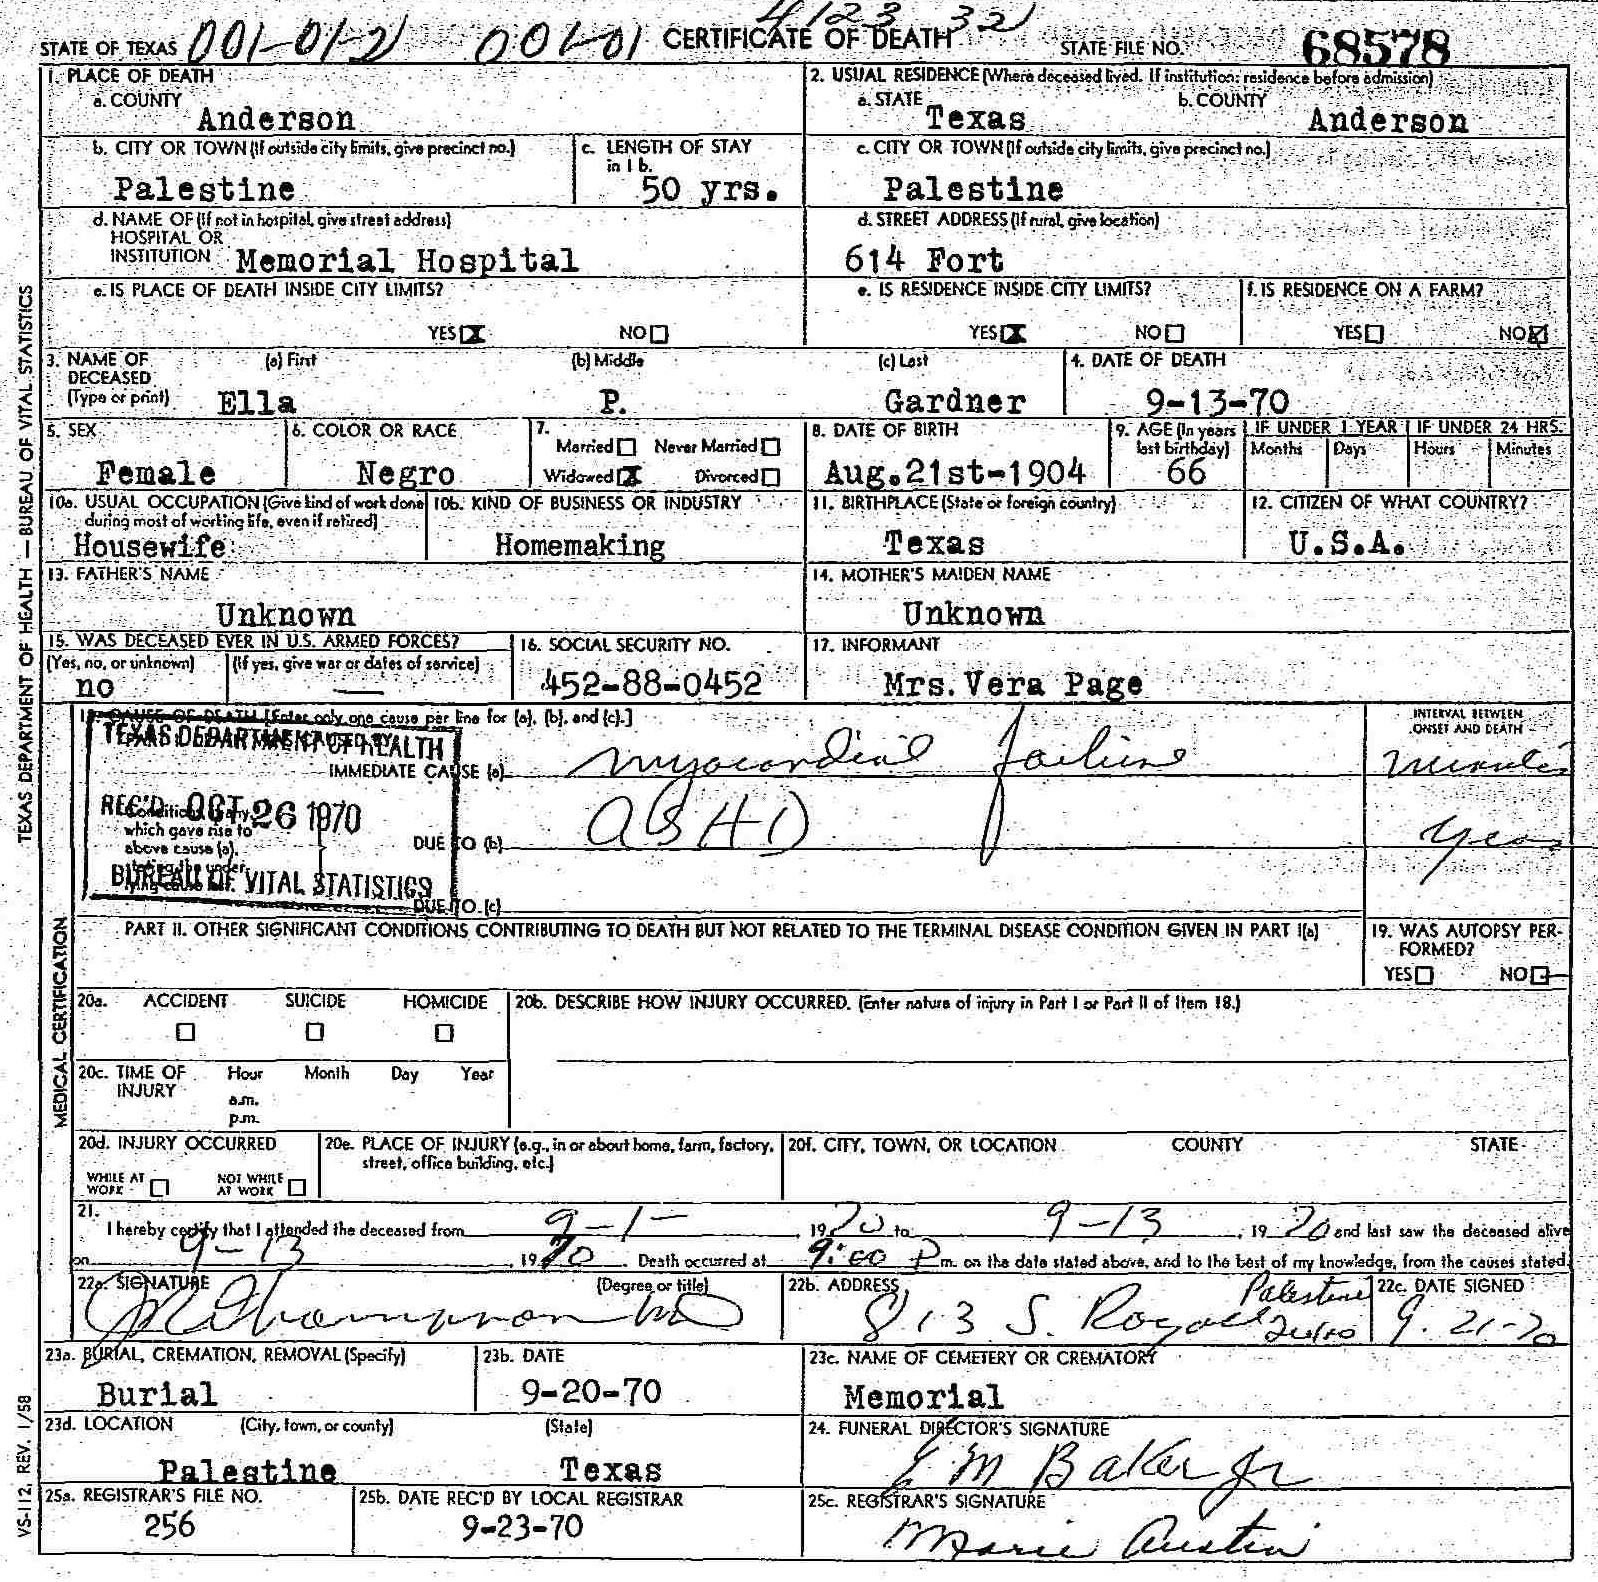 4123 32
STATE OF TEXAS 001-01-2 001-01 CERTIFICATE OF DEATH STATE FILE NO. 68578
1. PLACE OF DEATH
a. COUNTY
Anderson
2. USUAL RESIDENCE (Where deceased lived. If institution: residence before admission)
a. STATE b. COUNTY
Texas Anderson
b. CITY OR TOWN (If outside city limits, give precinct no.)
Palestine
c. LENGTH OF STAY
in 1 b.
50 yrs.
c. CITY OR TOWN (If outside city limits, give precinct no.)
Palestine
d. NAME OF (If not in hospital, give street address)
HOSPITAL OR
INSTITUTION Memorial Hospital
d. STREET ADDRESS (If rural, give location)
614 Fort
e. IS PLACE OF DEATH INSIDE CITY LIMITS?
YES NO
e. IS RESIDENCE INSIDE CITY LIMITS?
YES NO
f. IS RESIDENCE ON A FARM?
YES NO
3. NAME OF (a) First (b) Middle (c) Last
DECEASED
(Type or print) Ella P. Gardner
4. DATE OF DEATH
9-13-70
5. SEX
Female
6. COLOR OR RACE
Negro
7.
Married Never Married
Widowed Divorced
8. DATE OF BIRTH
Aug.21st-1904
9. AGE (In years
last birthday)
66
IF UNDER 1 YEAR IF UNDER 24 HRS.
Months Days Hours Minutes
10a. USUAL OCCUPATION (Give kind of work done
during most of working life, even if retired)
Housewife
10b. KIND OF BUSINESS OR INDUSTRY
Homemaking
11. BIRTHPLACE (State or foreign country)
Texas
12. CITIZEN OF WHAT COUNTRY?
U.S.A.
13. FATHER'S NAME
Unknown
14. MOTHER'S MAIDEN NAME
Unknown
15. WAS DECEASED EVER IN U.S. ARMED FORCES?
(Yes, no, or unknown) (If yes, give war or dates of service)
no —
16. SOCIAL SECURITY NO.
452-88-0452
17. INFORMANT
Mrs. Vera Page
18. CAUSE OF DEATH [Enter only one cause per line for (a), (b), and (c).]
TEXAS DEPARTMENT OF HEALTH
REC'D OCT 26 1970
BUREAU OF VITAL STATISTICS
IMMEDIATE CAUSE (a) Myocardial failure
INTERVAL BETWEEN
ONSET AND DEATH
minutes
Conditions, if any,
which gave rise to
above cause (a),
stating the under-
lying cause last.
DUE TO (b) ASHD
years
DUE TO (c)
PART II. OTHER SIGNIFICANT CONDITIONS CONTRIBUTING TO DEATH BUT NOT RELATED TO THE TERMINAL DISEASE CONDITION GIVEN IN PART I(a)
19. WAS AUTOPSY PER-
FORMED?
YES NO
20a. ACCIDENT SUICIDE HOMICIDE
20b. DESCRIBE HOW INJURY OCCURRED. (Enter nature of injury in Part I or Part II of Item 18.)
20c. TIME OF Hour Month Day Year
INJURY a.m.
p.m.
20d. INJURY OCCURRED
WHILE AT NOT WHILE
WORK AT WORK
20e. PLACE OF INJURY (e.g., in or about home, farm, factory,
street, office building, etc.)
20f. CITY, TOWN, OR LOCATION COUNTY STATE
21.
I hereby certify that I attended the deceased from 9-1- , 1970 to 9-13 , 1970 and last saw the deceased alive
on 9-13 , 1970 . Death occurred at 9:00 P m. on the date stated above, and to the best of my knowledge, from the causes stated.
22a. SIGNATURE (Degree or title)
Thompson MD
22b. ADDRESS
813 S. Royal Palestine
22c. DATE SIGNED
9-21-70
23a. BURIAL, CREMATION, REMOVAL (Specify)
Burial
23b. DATE
9-20-70
23c. NAME OF CEMETERY OR CREMATORY
Memorial
23d. LOCATION (City, town, or county) (State)
Palestine Texas
24. FUNERAL DIRECTOR'S SIGNATURE
E M Baker Jr
25a. REGISTRAR'S FILE NO.
256
25b. DATE REC'D BY LOCAL REGISTRAR
9-23-70
25c. REGISTRAR'S SIGNATURE
Marie Austin
TEXAS DEPARTMENT OF HEALTH — BUREAU OF VITAL STATISTICS
MEDICAL CERTIFICATION
VS-112, REV. 1/58